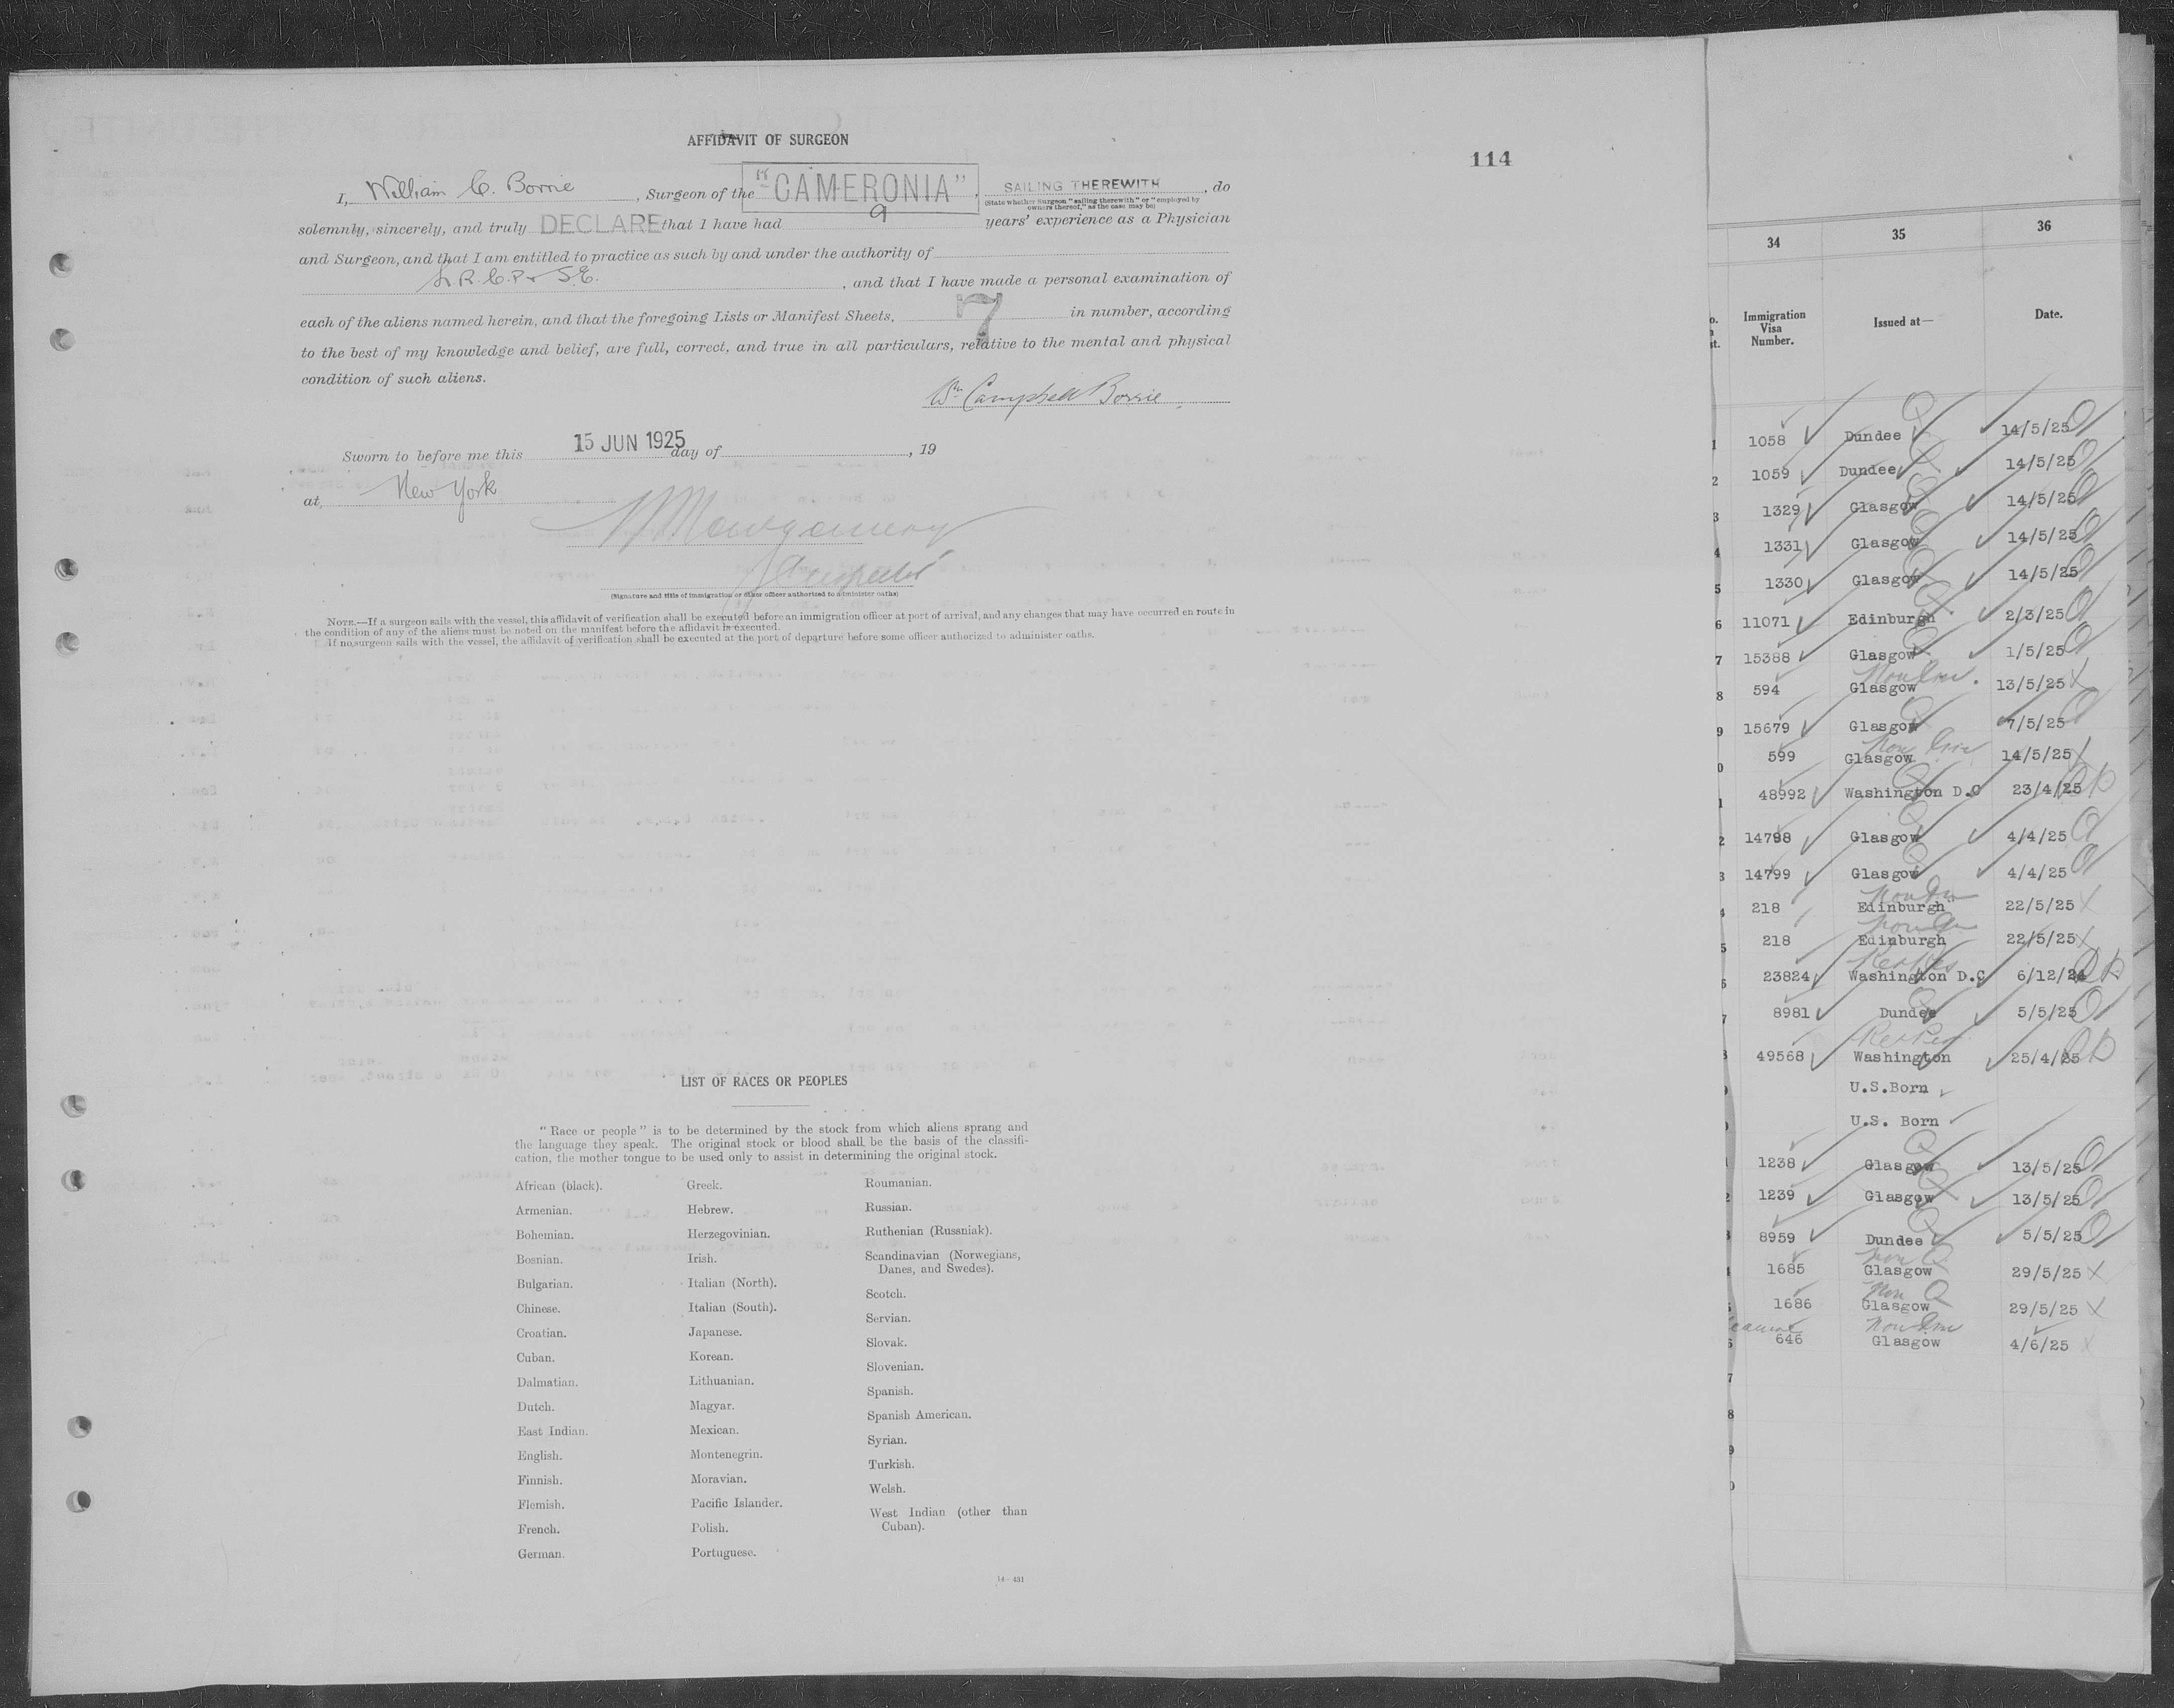 AFFIDAVIT OF SURGEON
114
I, William C. Borrie, Surgeon of the "CAMERONIA", SAILING THEREWITH, do
(State whether Surgeon "sailing therewith" or "employed by
owners thereof," as the case may be)
solemnly, sincerely, and truly DECLARE that I have had 9 years' experience as a Physician
and Surgeon, and that I am entitled to practice as such by and under the authority of
L.R.C.P. & S.E., and that I have made a personal examination of
each of the aliens named herein, and that the foregoing Lists or Manifest Sheets, 7 in number, according
to the best of my knowledge and belief, are full, correct, and true in all particulars, relative to the mental and physical
condition of such aliens.
Wm Campbell Borrie
Sworn to before me this 15 JUN 1925 day of , 19
at, New York
Montgomery
(Signature and title of immigration or other officer authorized to administer oaths)
NOTE.—If a surgeon sails with the vessel, this affidavit of verification shall be executed before an immigration officer at port of arrival, and any changes that may have occurred en route in
the condition of any of the aliens must be noted on the manifest before the affidavit is executed.
If no surgeon sails with the vessel, the affidavit of verification shall be executed at the port of departure before some officer authorized to administer oaths.
LIST OF RACES OR PEOPLES
"Race or people" is to be determined by the stock from which aliens sprang and
the language they speak. The original stock or blood shall be the basis of the classifi-
cation, the mother tongue to be used only to assist in determining the original stock.
African (black).
Armenian.
Bohemian.
Bosnian.
Bulgarian.
Chinese.
Croatian.
Cuban.
Dalmatian.
Dutch.
East Indian.
English.
Finnish.
Flemish.
French.
German.
Greek.
Hebrew.
Herzegovinian.
Irish.
Italian (North).
Italian (South).
Japanese.
Korean.
Lithuanian.
Magyar.
Mexican.
Montenegrin.
Moravian.
Pacific Islander.
Polish.
Portuguese.
Roumanian.
Russian.
Ruthenian (Russniak).
Scandinavian (Norwegians,
Danes, and Swedes).
Scotch.
Servian.
Slovak.
Slovenian.
Spanish.
Spanish American.
Syrian.
Turkish.
Welsh.
West Indian (other than
Cuban).
14—431
34 35 36
Immigration
Visa
Number.
Issued at—
Date.
1 1058 Dundee 14/5/25
2 1059 Dundee 14/5/25
3 1329 Glasgow 14/5/25
4 1331 Glasgow 14/5/25
5 1330 Glasgow 14/5/25
6 11071 Edinburgh 2/3/25
7 15388 Glasgow 1/5/25
Non Imm.
8 594 Glasgow 13/5/25
9 15679 Glasgow 7/5/25
Non Imm
0 599 Glasgow 14/5/25
1 48992 Washington D.C 23/4/25
2 14798 Glasgow 4/4/25
3 14799 Glasgow 4/4/25
4 218 Edinburgh 22/5/25
5 218 Edinburgh 22/5/25
6 23824 Washington D.C 6/12/24
7 8981 Dundee 5/5/25
8 49568 Washington 25/4/25
9 U.S.Born
0 U.S. Born
1 1238 Glasgow 13/5/25
2 1239 Glasgow 13/5/25
3 8959 Dundee 5/5/25
Non Q
4 1685 Glasgow 29/5/25
Non Q
5 1686 Glasgow 29/5/25
Non Imm
6 646 Glasgow 4/6/25
7
8
9
0